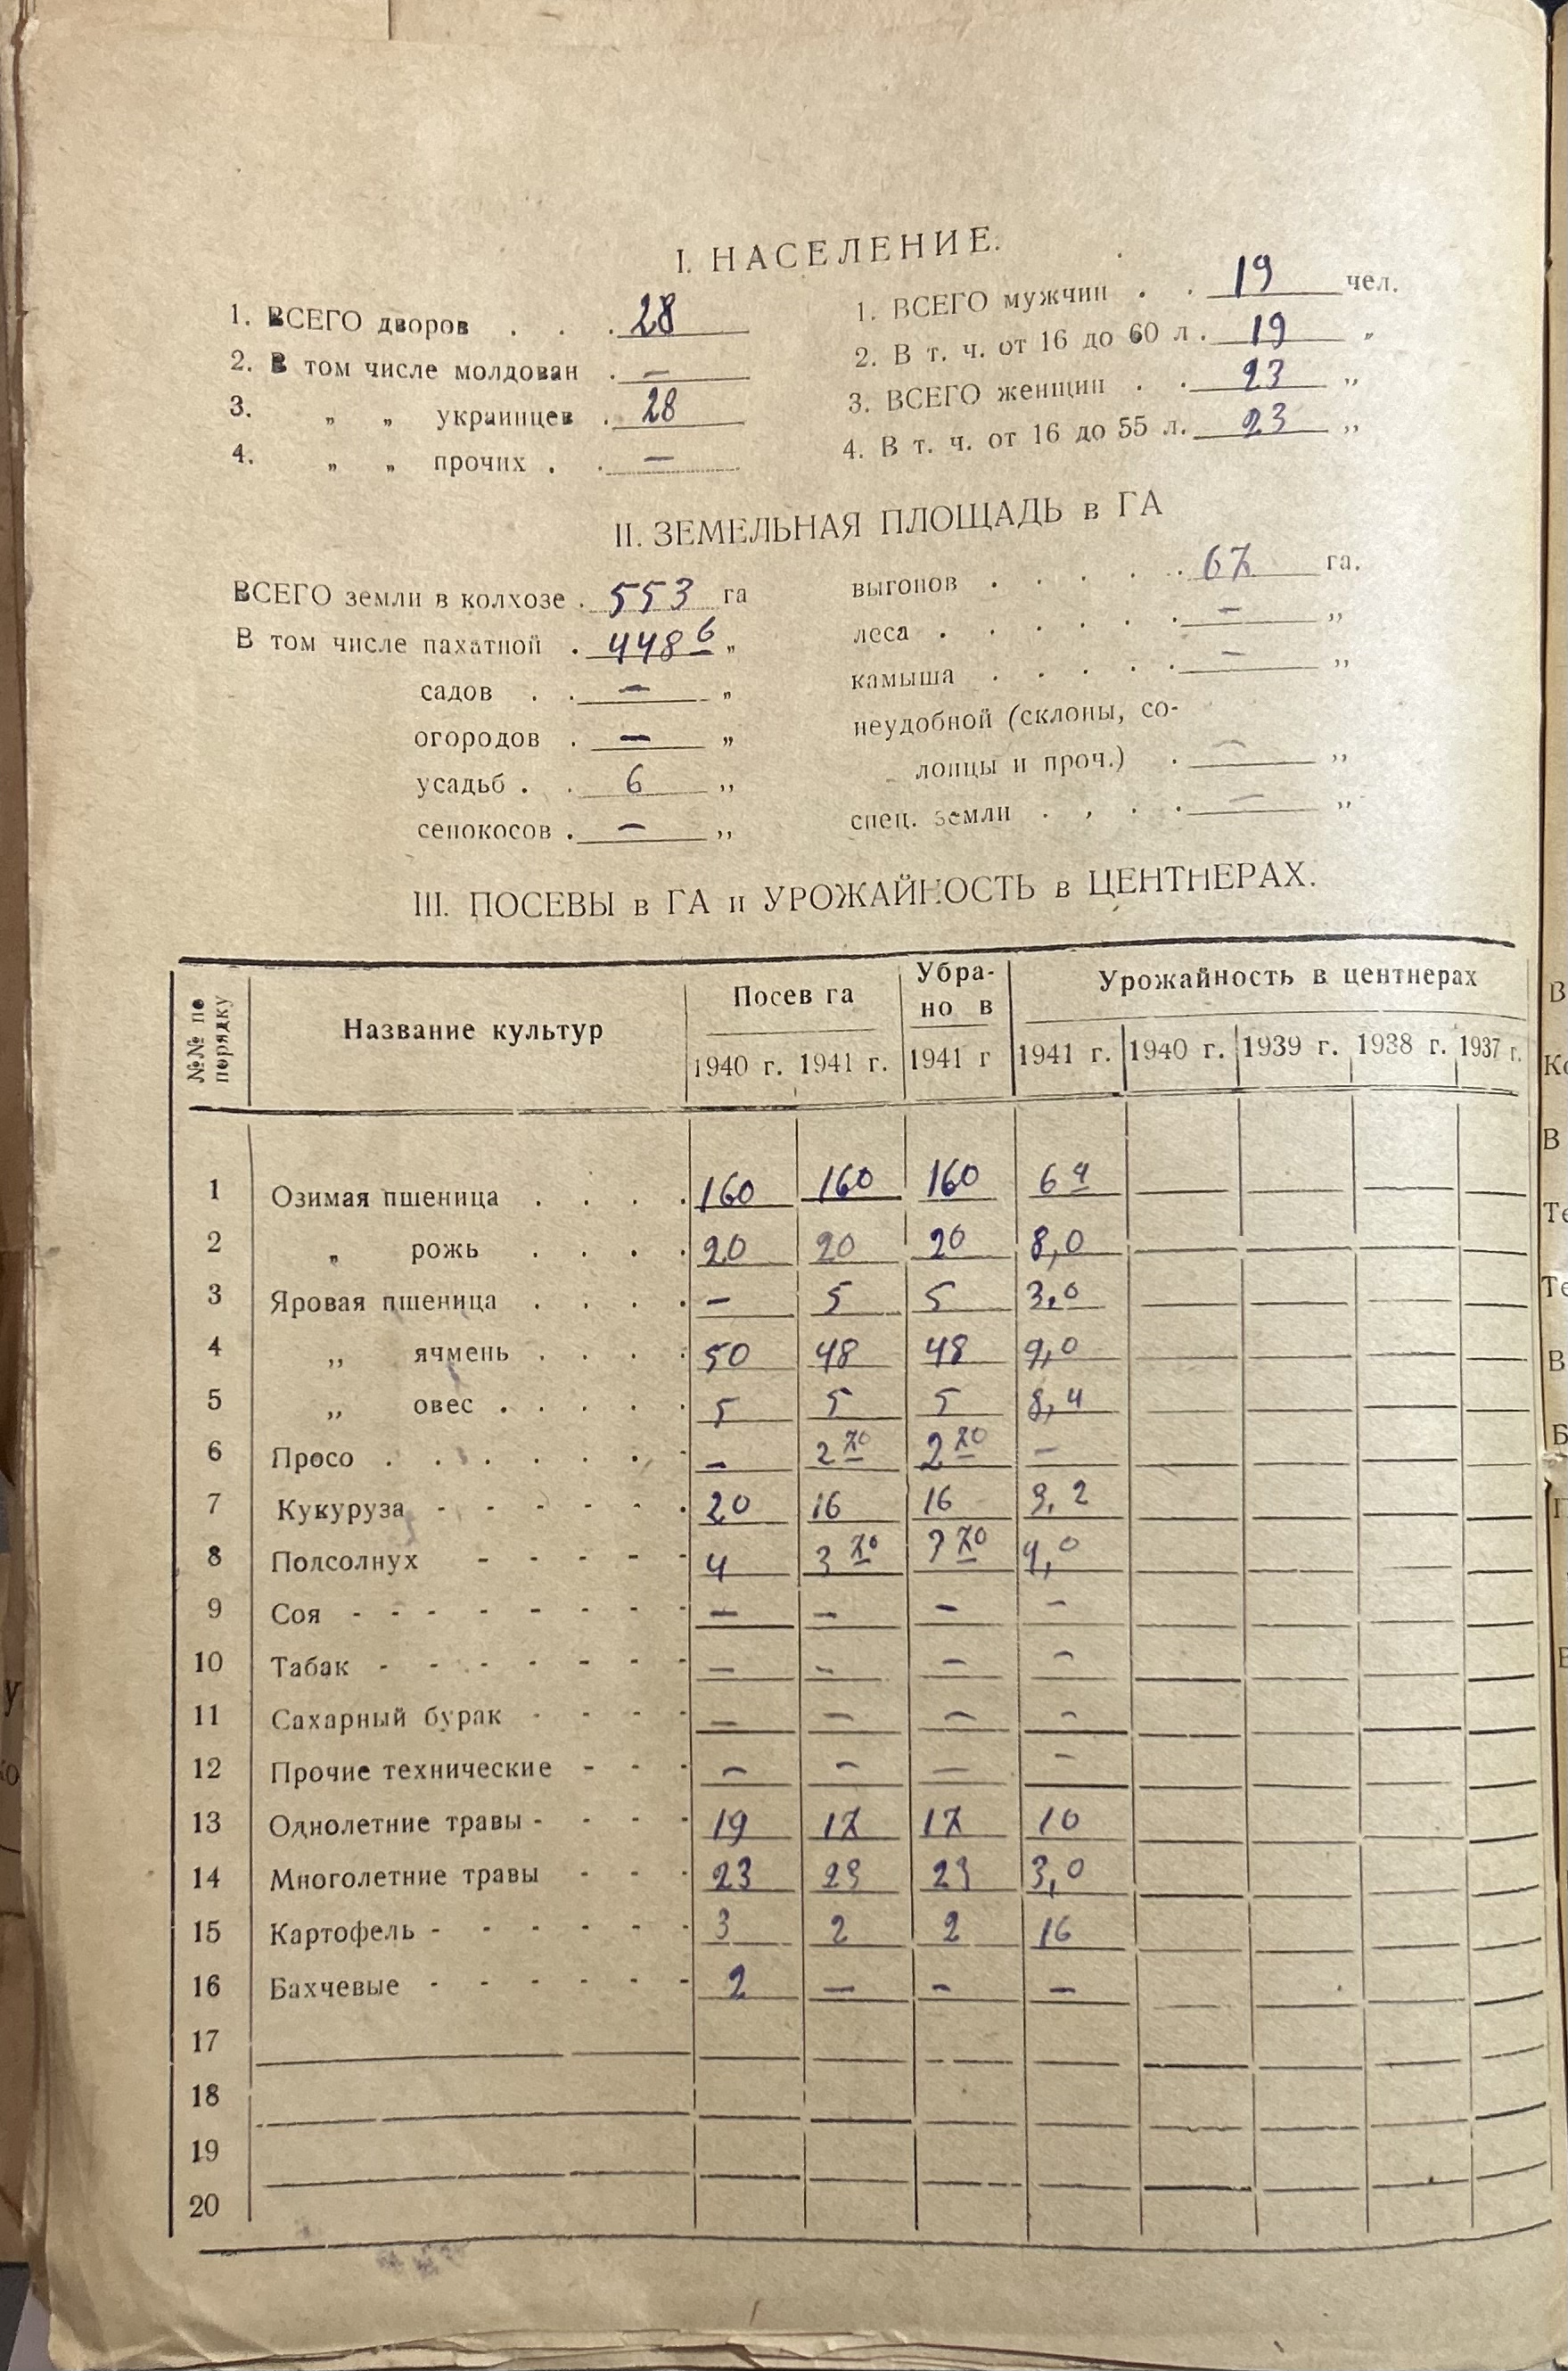 I. НАСЕЛЕНИЕ.
1. ВСЕГО дворов . . . 28
2. В том числе молдован . —
3. „ „ украинцев . 28
4. „ „ прочих . . —
1. ВСЕГО мужчин . . 19 чел.
2. В т. ч. от 16 до 60 л . 19 „
3. ВСЕГО женщин . . 23 „
4. В т. ч. от 16 до 55 л. 23 „
II. ЗЕМЕЛЬНАЯ ПЛОЩАДЬ в ГА
ВСЕГО земли в колхозе . 553 га
В том числе пахатной . 448 6 „
садов . . — „
огородов . — „
усадьб . . 6 „
сенокосов . — „
выгонов . . . . . 67 га.
леса . . . . . . — „
камыша . . . . . — „
неудобной (склоны, со-
лонцы и проч.) . — „
спец. земли . , . . — „
III. ПОСЕВЫ в ГА и УРОЖАЙНОСТЬ в ЦЕНТНЕРАХ.
№№ по порядку Название культур Посев га Убра-но в Урожайность в центнерах
1940 г. 1941 г. 1941 г 1941 г. 1940 г. 1939 г. 1938 г. 1937 г.
1 Озимая пшеница . . . . 160 160 160 6 4
2 „ рожь . . . . 20 20 20 8,0
3 Яровая пшеница . . . . — 5 5 3,0
4 „ ячмень . . . . 50 48 48 9,0
5 „ овес . . . . . 5 5 5 8,4
6 Просо . . . . . . . — 2 70 2 70 —
7 Кукуруза - - - - - . 20 16 16 9,2
8 Подсолнух - - - - - 4 3 70 3 70 4,0
9 Соя - - - - - - - - — — — —
10 Табак - - - - - - - — — — —
11 Сахарный бурак - - - - — — — —
12 Прочие технические - - - — — — —
13 Однолетние травы - - - - 19 17 17 10
14 Многолетние травы - - - 23 23 23 3,0
15 Картофель - - - - - - 3 2 2 16
16 Бахчевые - - - - - - 2 — — —
17
18
19
20